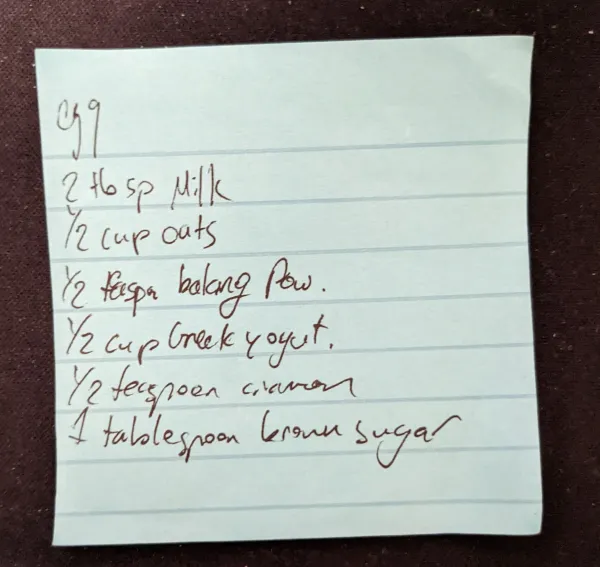 egg
2 tbsp Milk
1/2 cup oats
1/2 teaspn bakang Pow.
1/2 cup Greek yogut.
1/2 teaspoon cinamon
1 tablespoon brown sugar